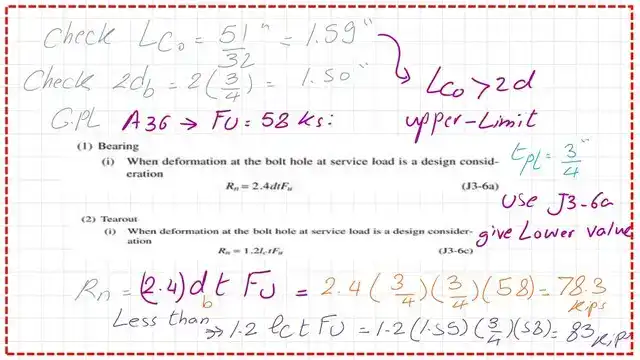 Check Lc₀ = 51"/32 = 1.59"
Check 2d_b = 2(3/4) = 1.50"
Lc₀ > 2d
G.PL A36 → FU = 58 ksi
upper-Limit
(1) Bearing
(i) When deformation at the bolt hole at service load is a design consid-
eration
Rₙ = 2.4dtFᵤ (J3-6a)
t_PL = 3/4"
Use J3-6a
give Lower value
(2) Tearout
(i) When deformation at the bolt hole at service load is a design consider-
ation
Rₙ = 1.2l_c tFᵤ (J3-6c)
Rn = (2.4) d_b t FU = 2.4 (3/4)(3/4)(58) = 78.3 kips
Less than ⇒ 1.2 lc t FU = 1.2 (1.59)(3/4)(58) = 83 kips